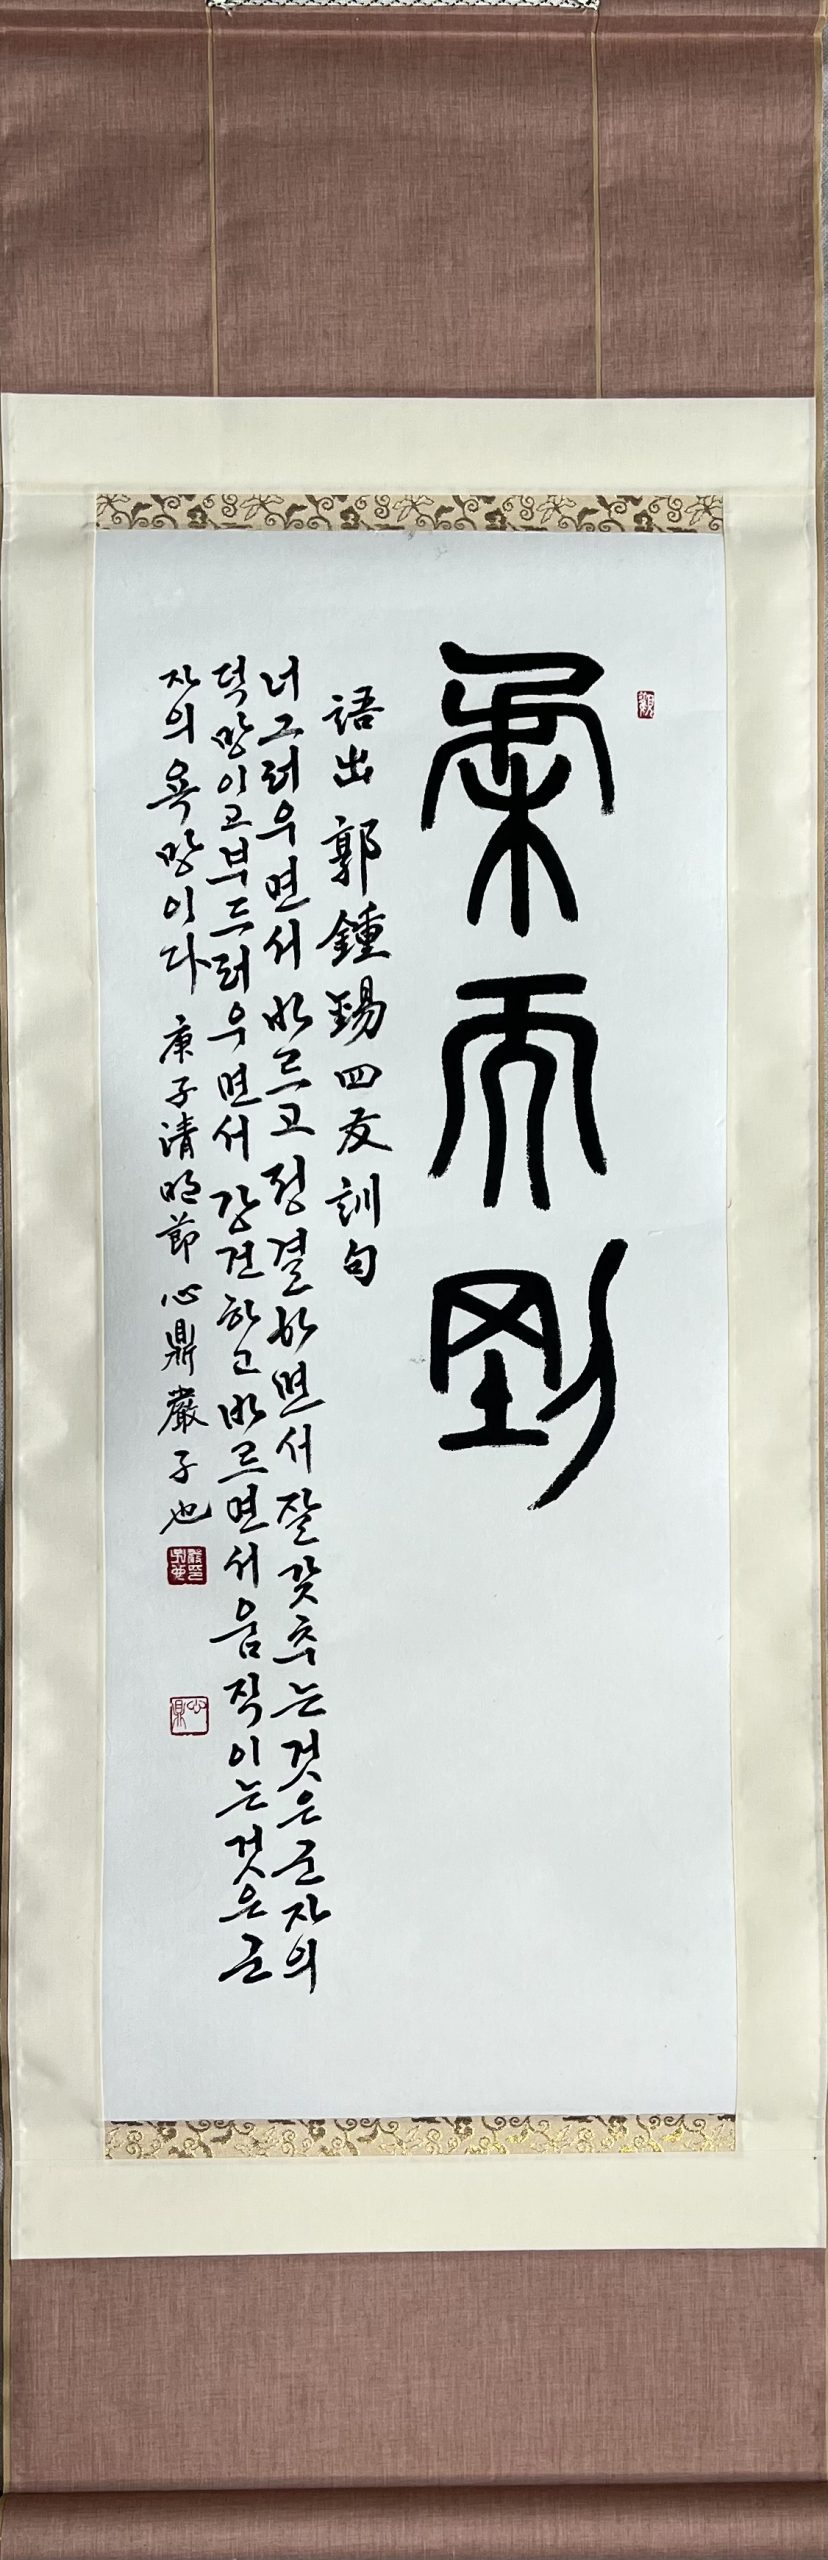 柔而剛
語出 郭鍾錫四友訓句
너그러우면서 바르고 정결하면서 잘 갖추는 것은 군자의
덕망이고 부드러우면서 강건하고 바르면서 움직이는 것은 군
자의 욕망이다 庚子清明節 心鼎 嚴子也
心鼎